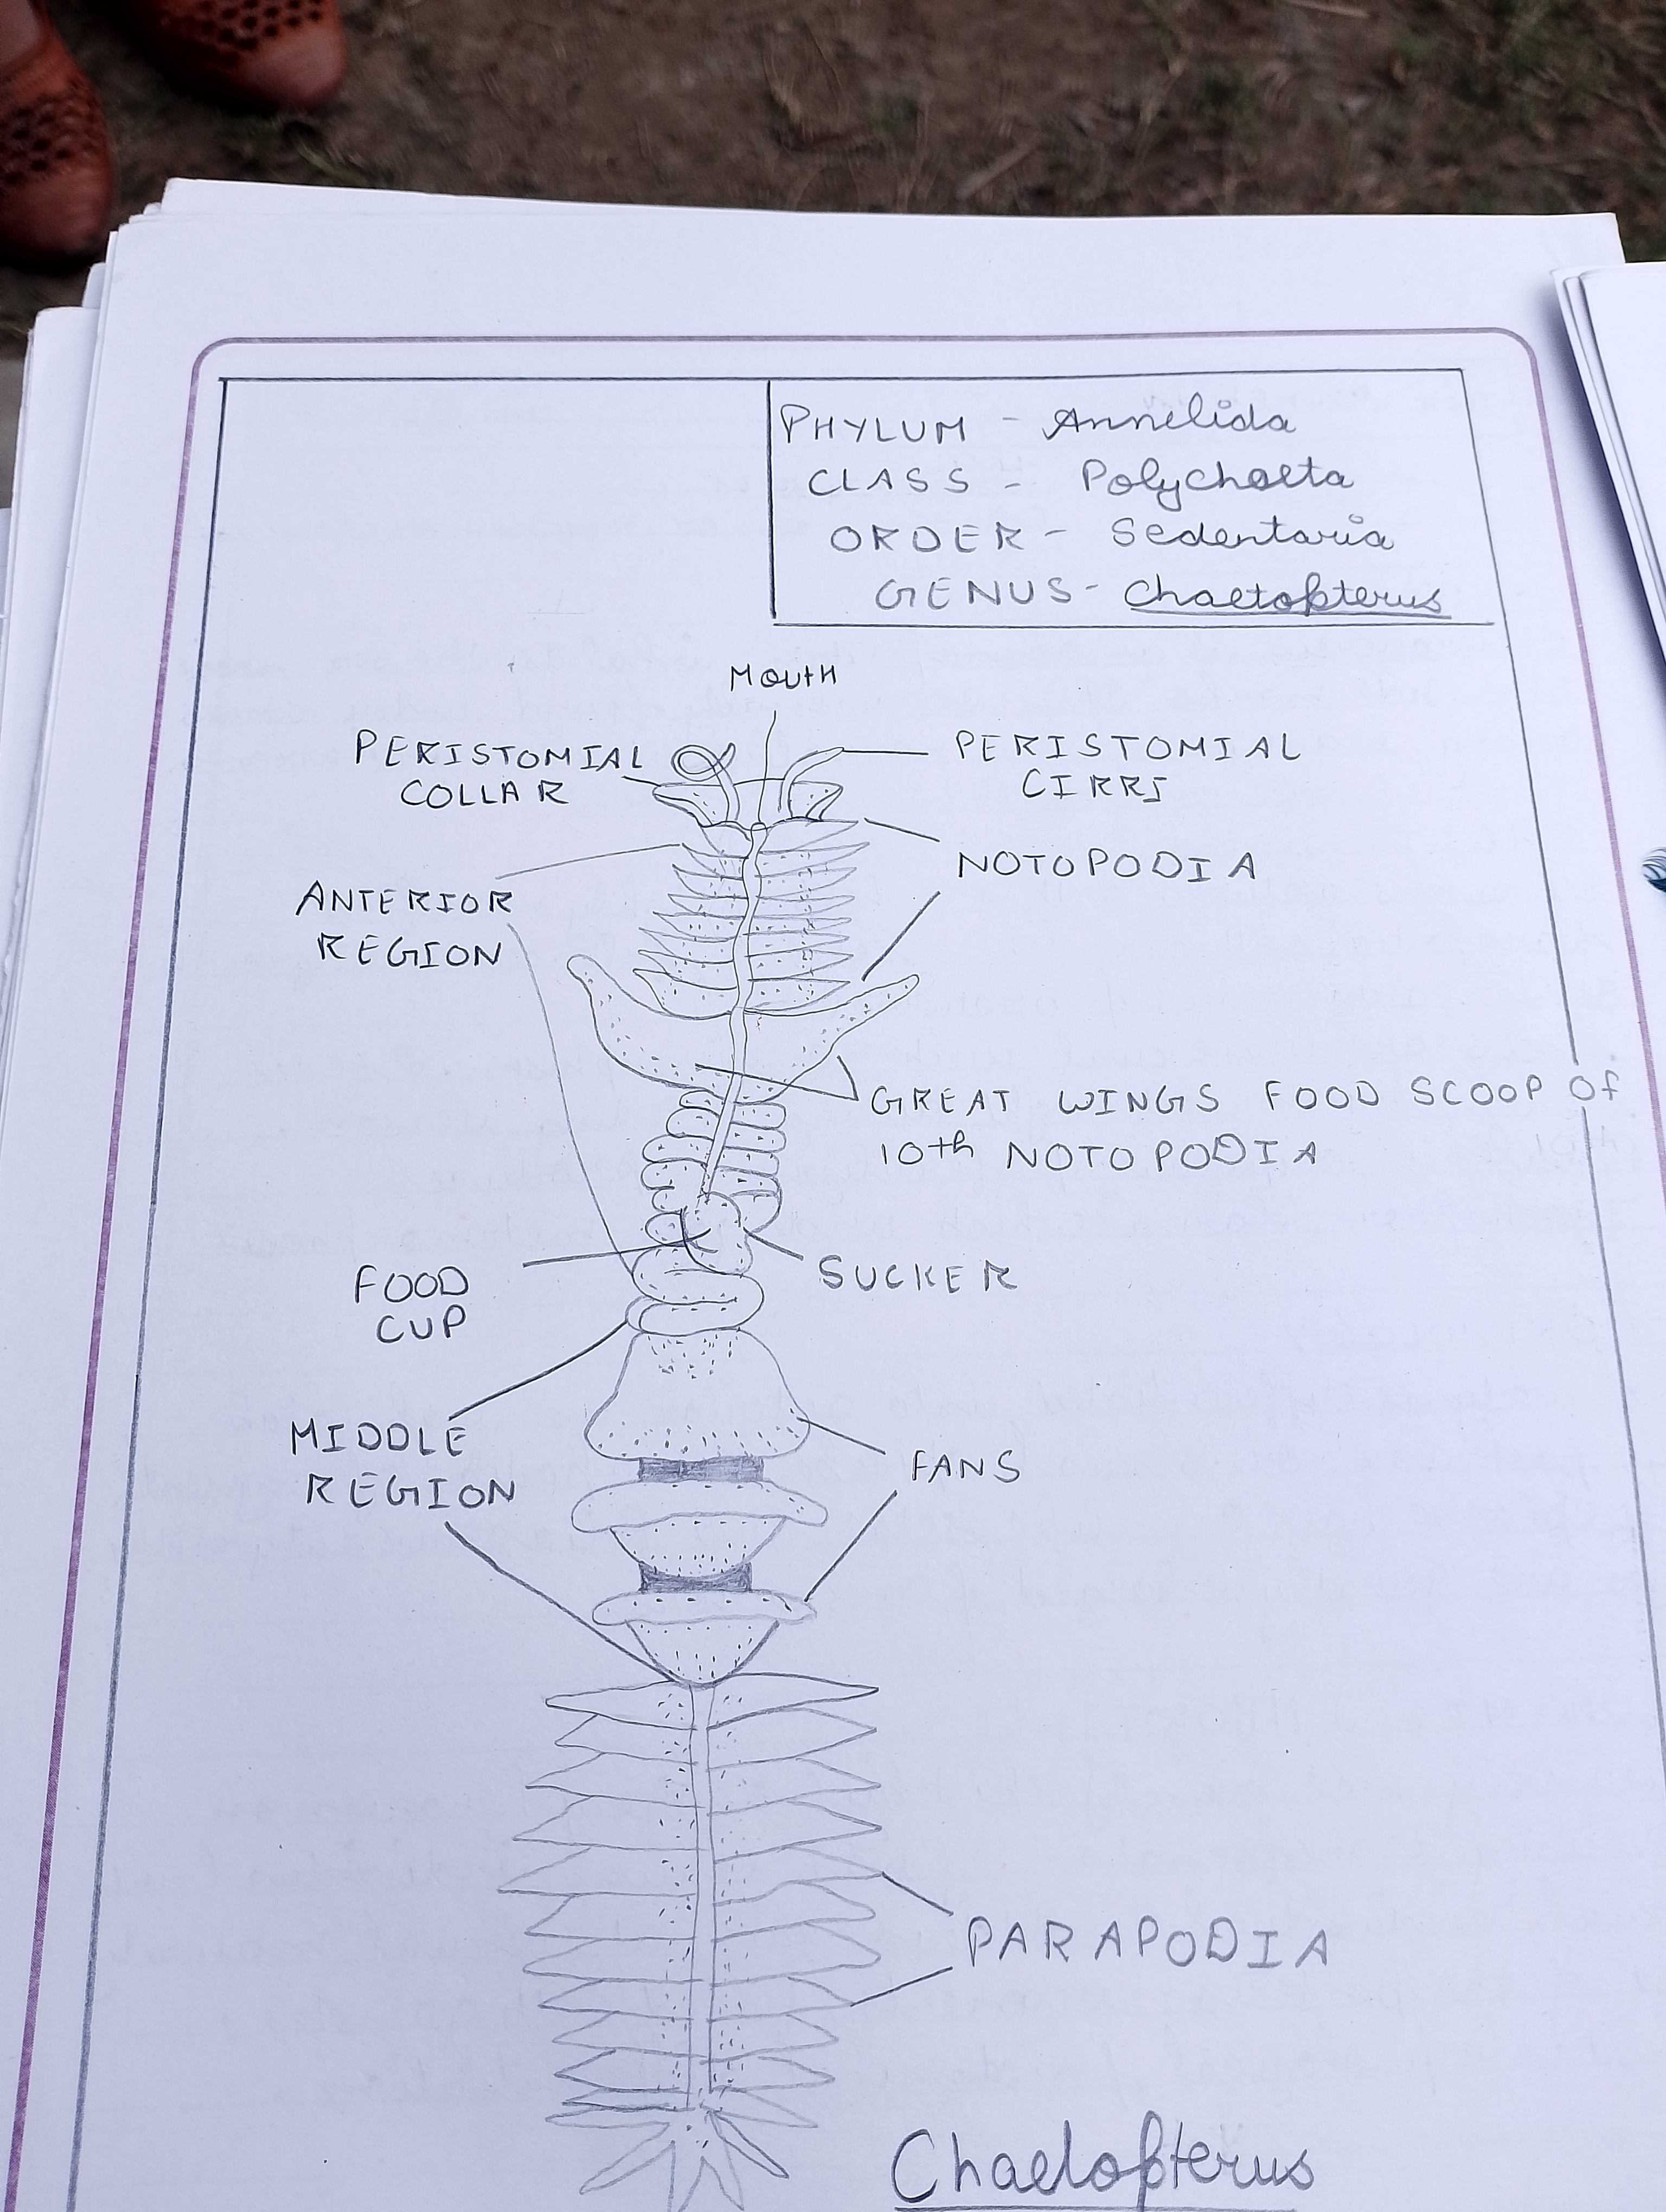 PHYLUM - Annelida
CLASS - Polychaeta
ORDER - Sedentaria
GENUS - Chaetopterus
MOUTH
PERISTOMIAL
COLLAR
PERISTOMIAL
CIRRI
NOTOPODIA
ANTERIOR
REGION
GREAT WINGS FOOD SCOOP Of
10th NOTOPODIA
FOOD
CUP
SUCKER
MIDDLE
REGION
FANS
PARAPODIA
Chaetopterus